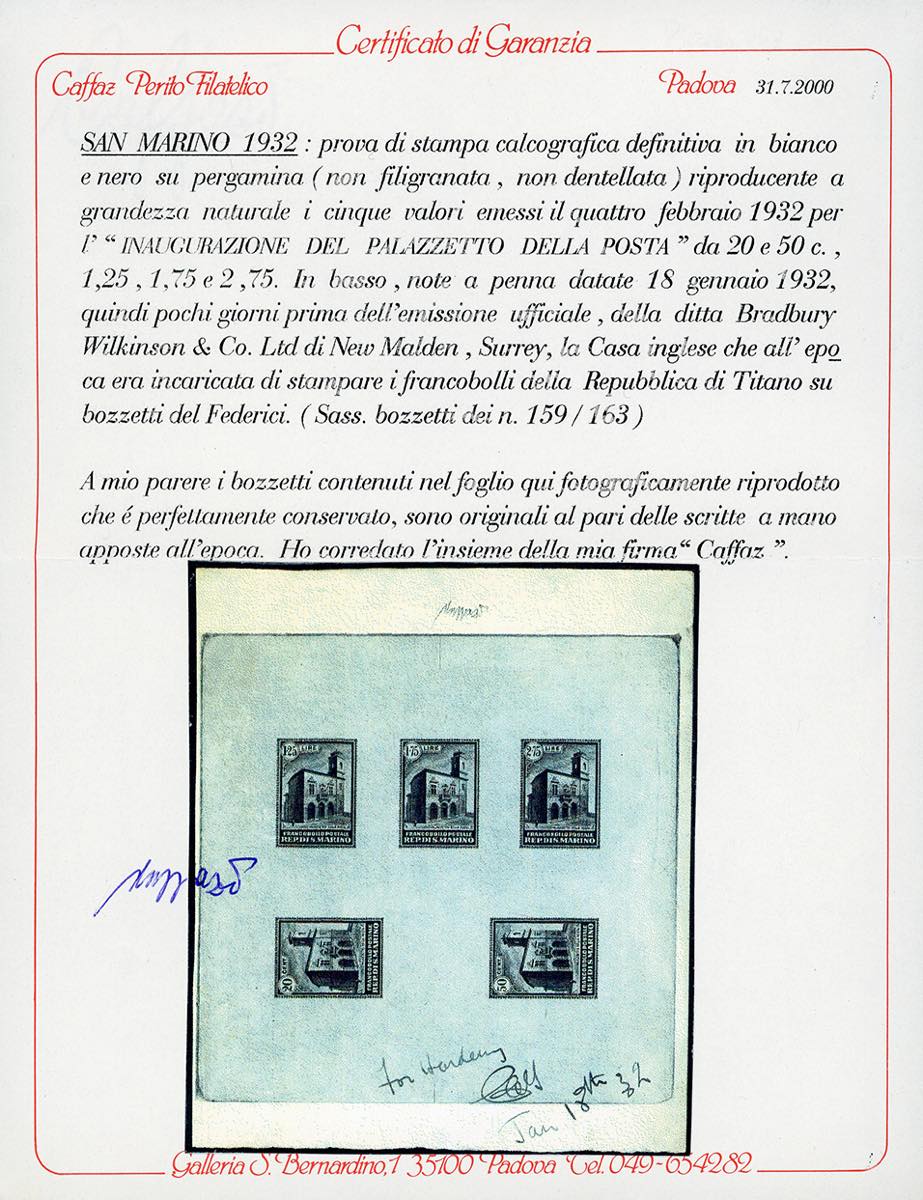 Certificato di Garanzia
Caffaz Perito Filatelico
Padova 31.7.2000
SAN MARINO 1932 : prova di stampa calcografica definitiva in bianco
e nero su pergamina ( non filigranata , non dentellata ) riproducente a
grandezza naturale i cinque valori emessi il quattro febbraio 1932 per
l' “ INAUGURAZIONE DEL PALAZZETTO DELLA POSTA ” da 20 e 50 c. ,
1,25 , 1,75 e 2 ,75. In basso , note a penna datate 18 gennaio 1932,
quindi pochi giorni prima dell'emissione ufficiale , della ditta Bradbury
Wilkinson & Co. Ltd di New Malden , Surrey, la Casa inglese che all' epo
ca era incaricata di stampare i francobolli della Repubblica di Titano su
bozzetti del Federici. ( Sass. bozzetti dei n. 159 / 163 )
A mio parere i bozzetti contenuti nel foglio qui fotograficamente riprodotto
che é perfettamente conservato, sono originali al pari delle scritte a mano
apposte all'epoca. Ho corredato l'insieme della mia firma “ Caffaz ”.
1.25 LIRE
FRANCOBOLLO POSTALE
REP. DI S. MARINO
1.75 LIRE
FRANCOBOLLO POSTALE
REP. DI S. MARINO
2.75 LIRE
FRANCOBOLLO POSTALE
REP. DI S. MARINO
20 CENT
FRANCOBOLLO POSTALE
REP. DI S. MARINO
50 CENT
FRANCOBOLLO POSTALE
REP. DI S. MARINO
for
Jan 18th 32
Galleria S. Bernardino,1 35100 Padova Tel. 049-654282